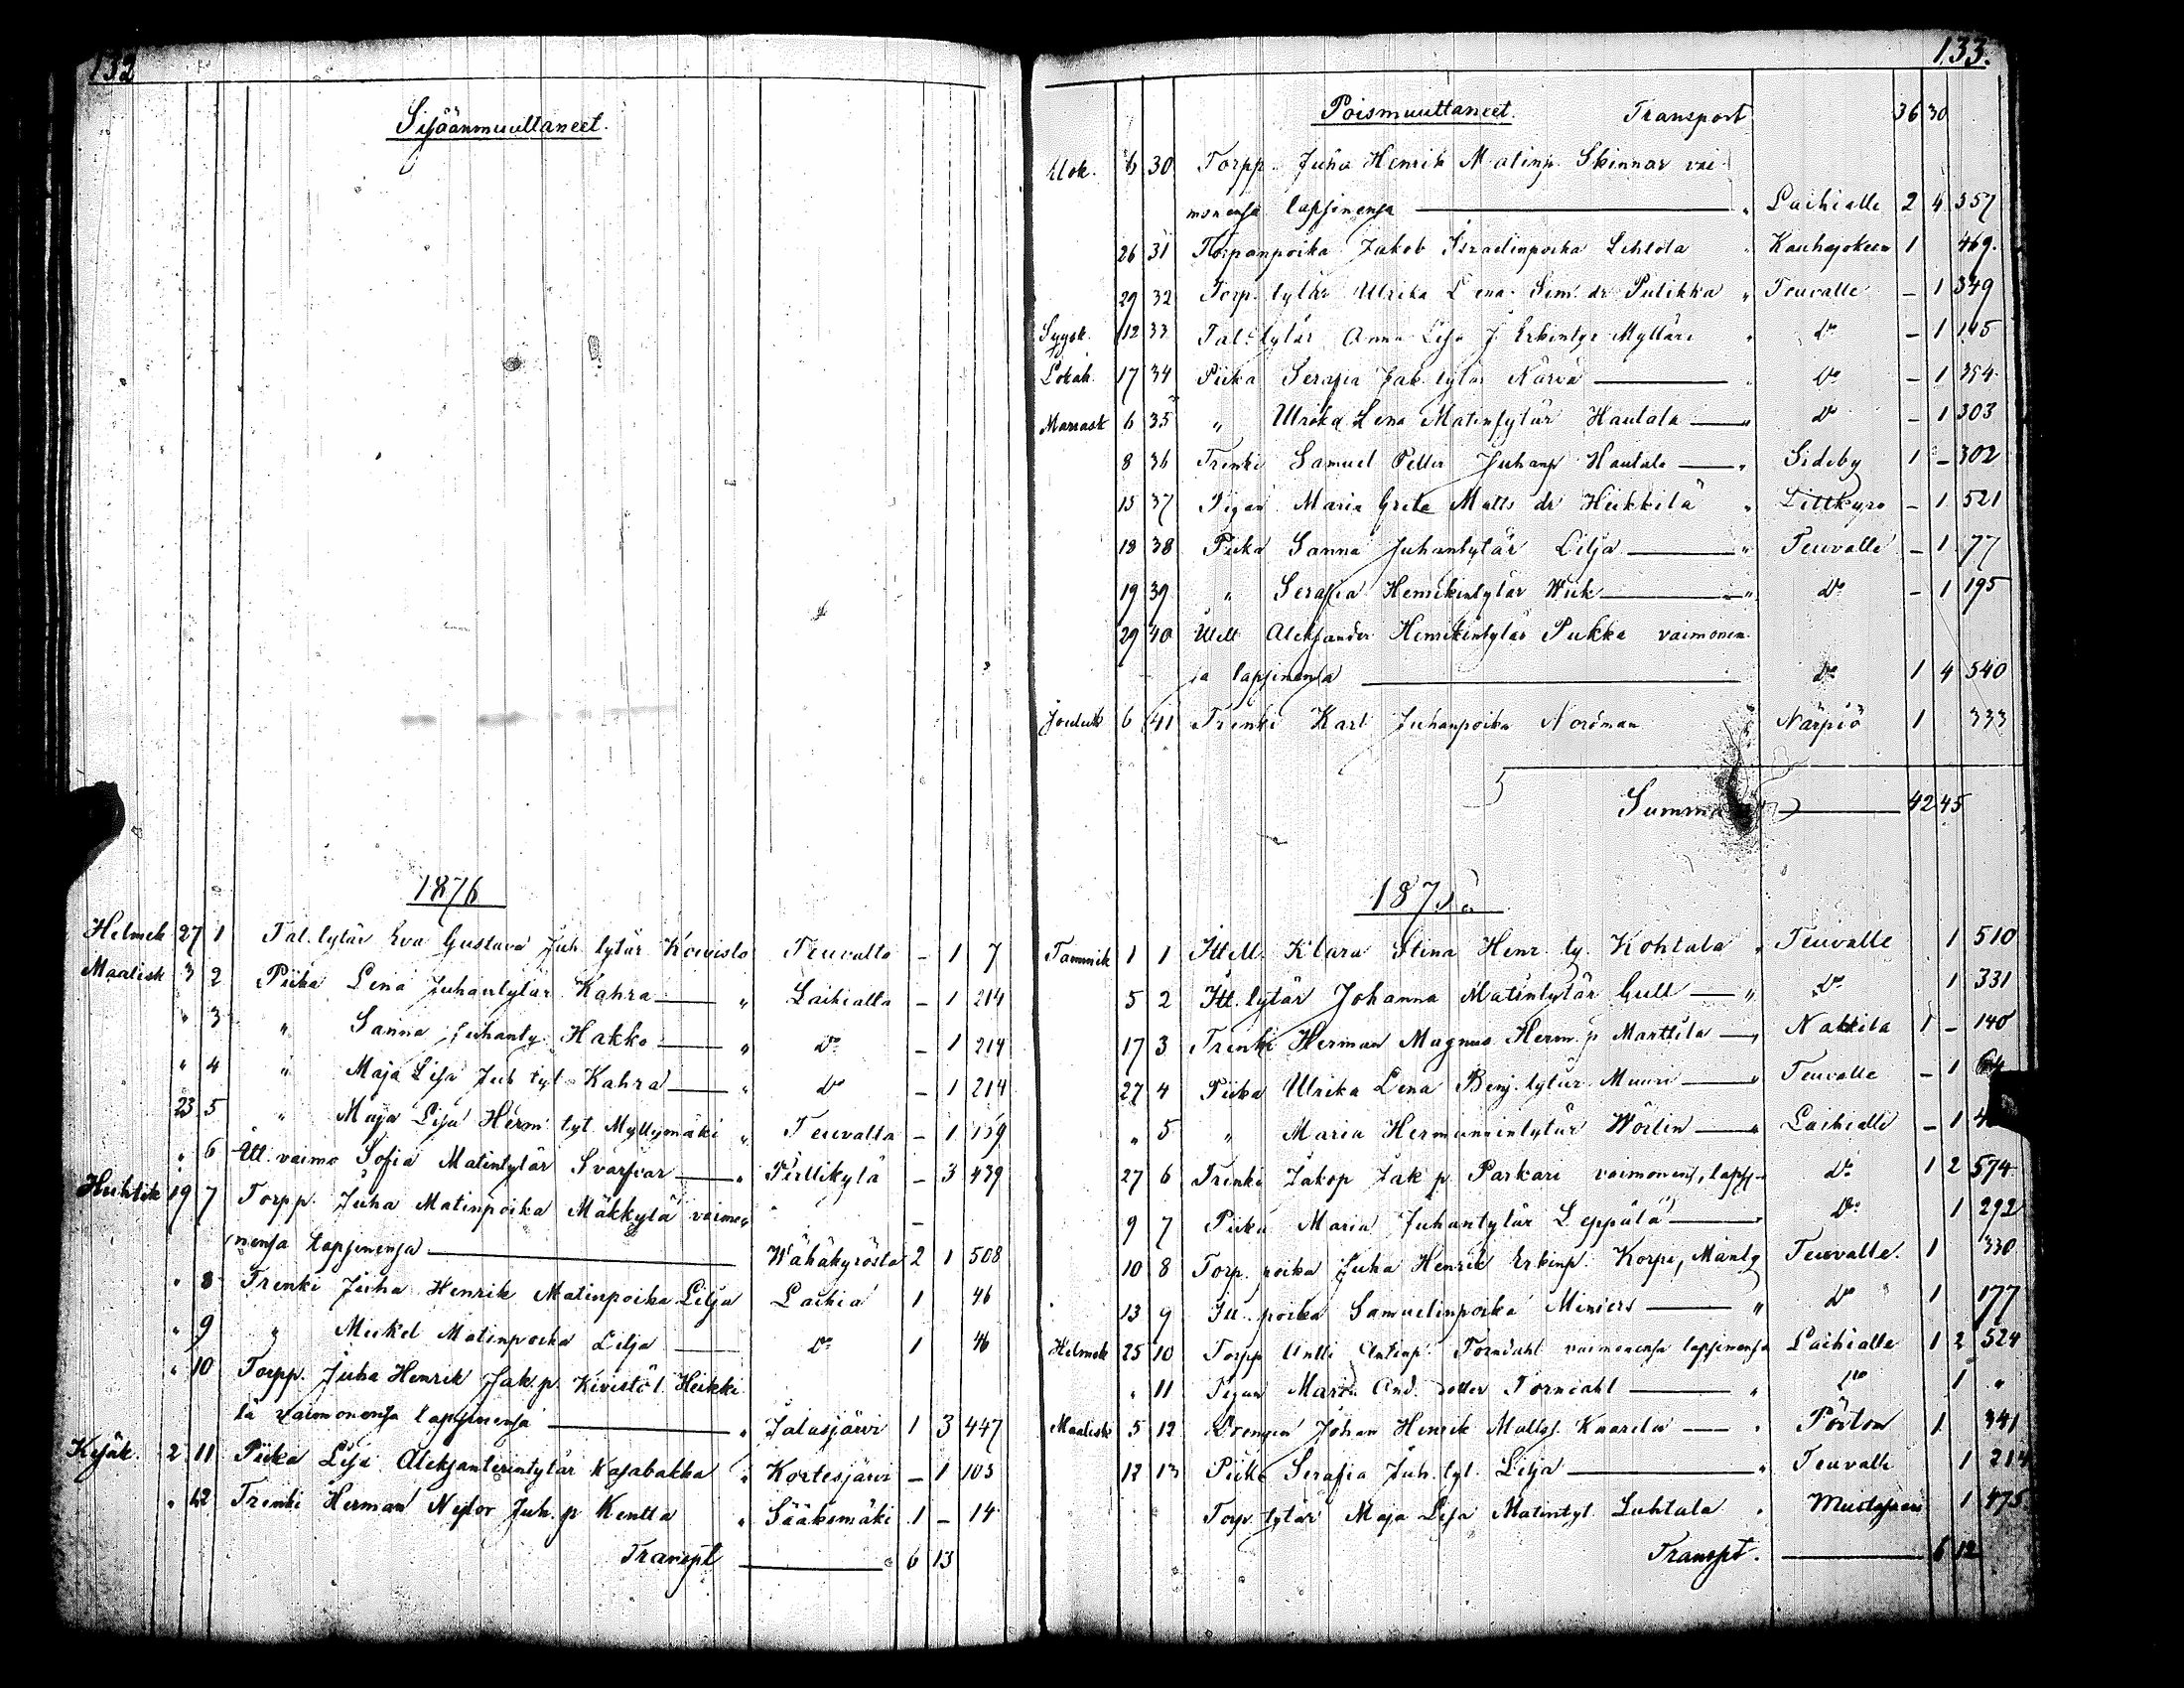 132
Sisäänmuuttaneet.
1876
Helmik 27 1 Tal. tytär Eva Gustava Juh. tytär Koivisto Teuvalta - 1 7
Maalisk 3 2 Piika Lena Juhantytär Kahra — " Laihialta - 1 214
" 3 " Sanna Juhanty. Hakko — " do - 1 214
" 4 " Maja Lisa Juh tyt. Kahra — " do - 1 214
23 5 " Maja Lisa Herm. tyt. Myllymäki " Teuvalta - 1 159
" 6 Itt. vaimo Sofia Matintytär Svarfvar — " Pirttikylä - 3 439
Huhtik 19 7 Torpp. Juha Matinpoika Mäkkylä vaimo
nensa lapsinensa — Wähäkyröstä 2 1 508
" 8 Trenki Juha Henrik Matinpoika Lilja Laihia 1 46
" 9 " Mickel Matinpoika Lilja — do 1 46
" 10 Torpp. Juha Henrik Jak. p. Kivistö l. Heikki
lä vaimonensa lapsinensa — " Jalasjärvi 1 3 447
Kesäk. 2 11 Piika Lisa Aleksanterintytär Kasabakka " Kortesjärvi - 1 103
" 12 Trenki Herman Nestor Juh. p. Kentta " Sääksmäki 1 - 14
Transpt — 6 13
133.
Poismuuttaneet. Transport 36 30
Elok. 6 30 Torpp. Juha Henrik Matinp. Skinnar vai
monensa lapsinensa — " Laihialle 2 4 357
26 31 Torpanpoika Jakob Israelinpoika Lehtola " Kauhajokeen 1 469.
29 32 Torp. tytär Ulrika Lena Sim. dr Pulikka " Teuvalle - 1 349
Syysk. 12 33 Tal. tytär Anna Lisa J. Erkinty. Mylläri " do - 1 145
Lokak. 17 34 Piika Serafia Jak. tytär Närvä — " do - 1 354
Marrask 6 35 " Ulrika Lena Matintytär Hautala — " do - 1 303
8 36 Trenki Samuel Petter Juhanp Hautala — " Sideby 1 - 302
15 37 Pigan Maria Greta Matts dr Heikkilä " Littkyro - 1 521
18 38 Piika Sanna Juhantytär Lilja — " Teuvalle - 1 77
19 39 " Serafia Henrikintytär Wiik — " do - 1 195
29 40 Itell Aleksander Henrikintytär Pukka vaimonen
sa lapsinensa — do 1 4 540
Jouluk 6 41 Trenki Karl Juhanpoika Nordman " Närpiö 1 333
Summa — 42 45
187
Tammik 1 1 Itell. Klara Stina Henr. ty. Kohtala " Teuvalle 1 510
5 2 Itt. tytär Johanna Matintytär Gull — " do 1 331
17 3 Trenki Herman Magnus Herm. p Marttila — " Nakkila 1 - 140
27 4 Piika Ulrika Lena Benj. tytär Muuri — " Teuvalle - 1 64
" 5 " Maria Hermanintytär Wörlin — " Laihialle - 1
27 6 Trenki Jakop Jak p. Parkari vaimonens, laps do 1 2 574
9 7 Piika Maria Juhantytär Leppälä — " do 1 292
10 8 Torp. poika Juha Henrik Erkinp. Korpi, Mänty Teuvalle. 1 330
13 9 Itt. poika Samuelinpoika Miniers — " do 1 177
Helmik 25 10 Torpp Antti Antinp. Torndahl vaimonensa lapsinensa Laihialle 1 2 524
" 11 Pigan Maria And. dotter Torndahl — " do 1 "
Maalisk 5 12 Drengen Johan Henrik Matts s. Kaarela — " Pörtom 1 341
12 13 Piika Serafia Juh. tyt. Lilja — " Teuvalle 1 214
Torp. tytär Maja Lisa Matintyt. Luhtala " Mustasaari 1 475
Transpt. — 6 12